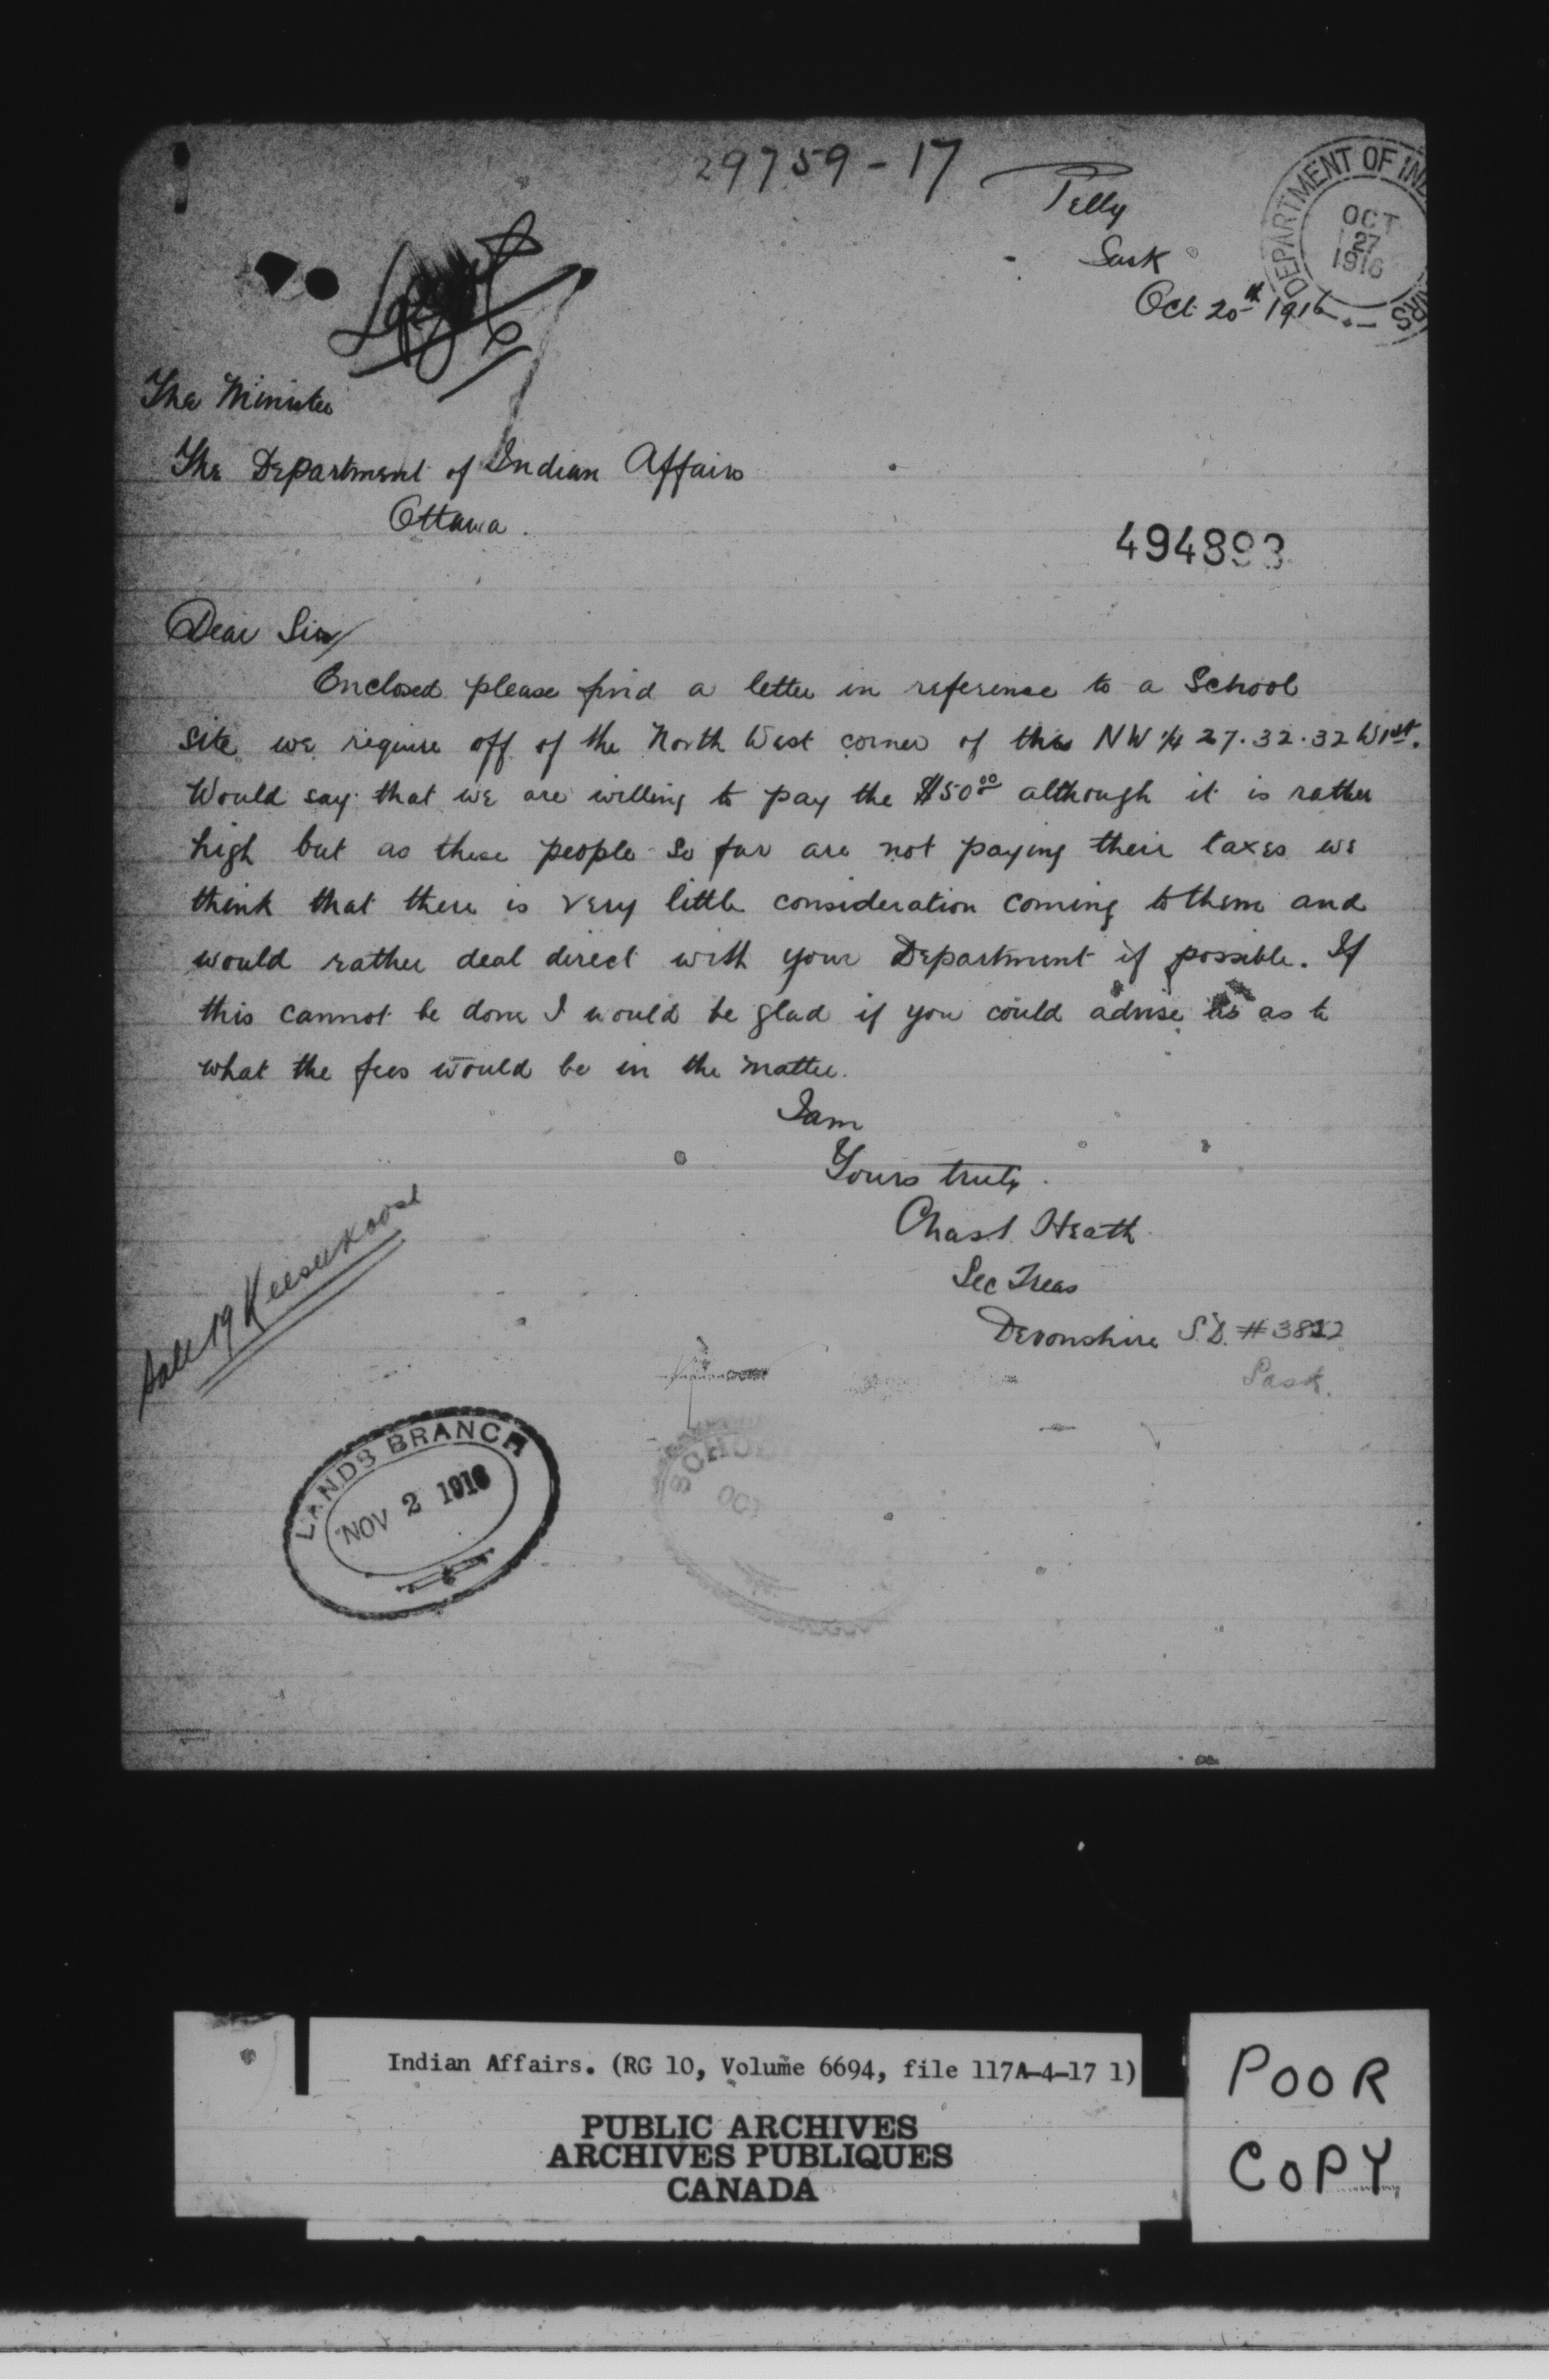 29759-17
Pelly
Sask
Oct 20th 1916
DEPARTMENT OF IND
OCT
27
1916
The Minister
The Department of Indian Affairs
Ottawa.
494893
Dear Sir/
Enclosed please find a letter in reference to a School
Site we require off of the North West corner of this NW ¼ 27.32.32 W1st.
Would say that we are willing to pay the $50.00 although it is rather
high but as these people so far are not paying their taxes we
think that there is very little consideration coming to them and
would rather deal direct with your Department if possible. If
this cannot be done I would be glad if you could advise us as to
what the fees would be in the matter.
I am
Yours truly.
Chas. Heath
Sec Treas
Devonshire S.D. #3812
Sask.
Sale 19 Keeseekoose
LANDS BRANCH
NOV 2 1916
SCHOO
OCT
Indian Affairs. (RG 10, Volume 6694, file 117A-4-17 1)
PUBLIC ARCHIVES
ARCHIVES PUBLIQUES
CANADA
POOR
COPY